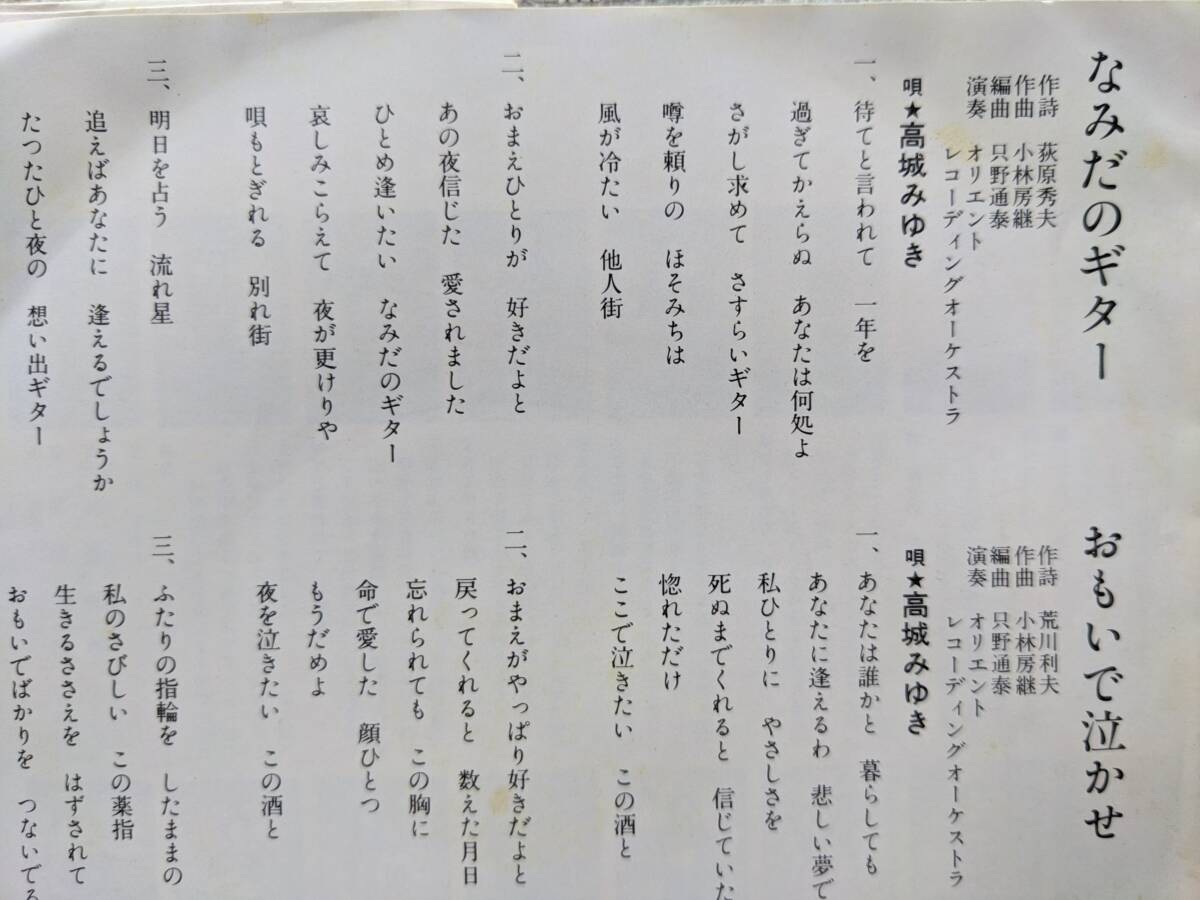 なみだのギター
作詩　荻原秀夫
作曲　小林房継
編曲　只野通泰
演奏　オリエント
レコーディングオーケストラ
唄★高城みゆき
一、待てと言われて　一年を
過ぎてかえらぬ　あなたは何処よ
さがし求めて　さすらいギター
噂を頼りの　ほそみちは
風が冷たい　他人街
二、おまえひとりが　好きだよと
あの夜信じた　愛されました
ひとめ逢いたい　なみだのギター
哀しみこらえて　夜が更けりゃ
唄もとぎれる　別れ街
三、明日を占う　流れ星
追えばあなたに　逢えるでしょうか
たつたひと夜の　想い出ギター
おもいで泣かせ
作詩　荒川利夫
作曲　小林房継
編曲　只野通泰
演奏　オリエント
レコーディングオーケストラ
唄★高城みゆき
一、あなたは誰かと　暮らしても
あなたに逢えるわ　悲しい夢で
私ひとりに　やさしさを
死ぬまでくれると　信じていた
惚れただけ
ここで泣きたい　この酒と
二、おまえがやっぱり好きだよと
戻ってくれると　数えた月日
忘れられても　この胸に
命で愛した　顔ひとつ
もうだめよ
夜を泣きたい　この酒と
三、ふたりの指輪を　したままの
私のさびしい　この薬指
生きるささえを　はずされて
おもいでばかりを　つないでる